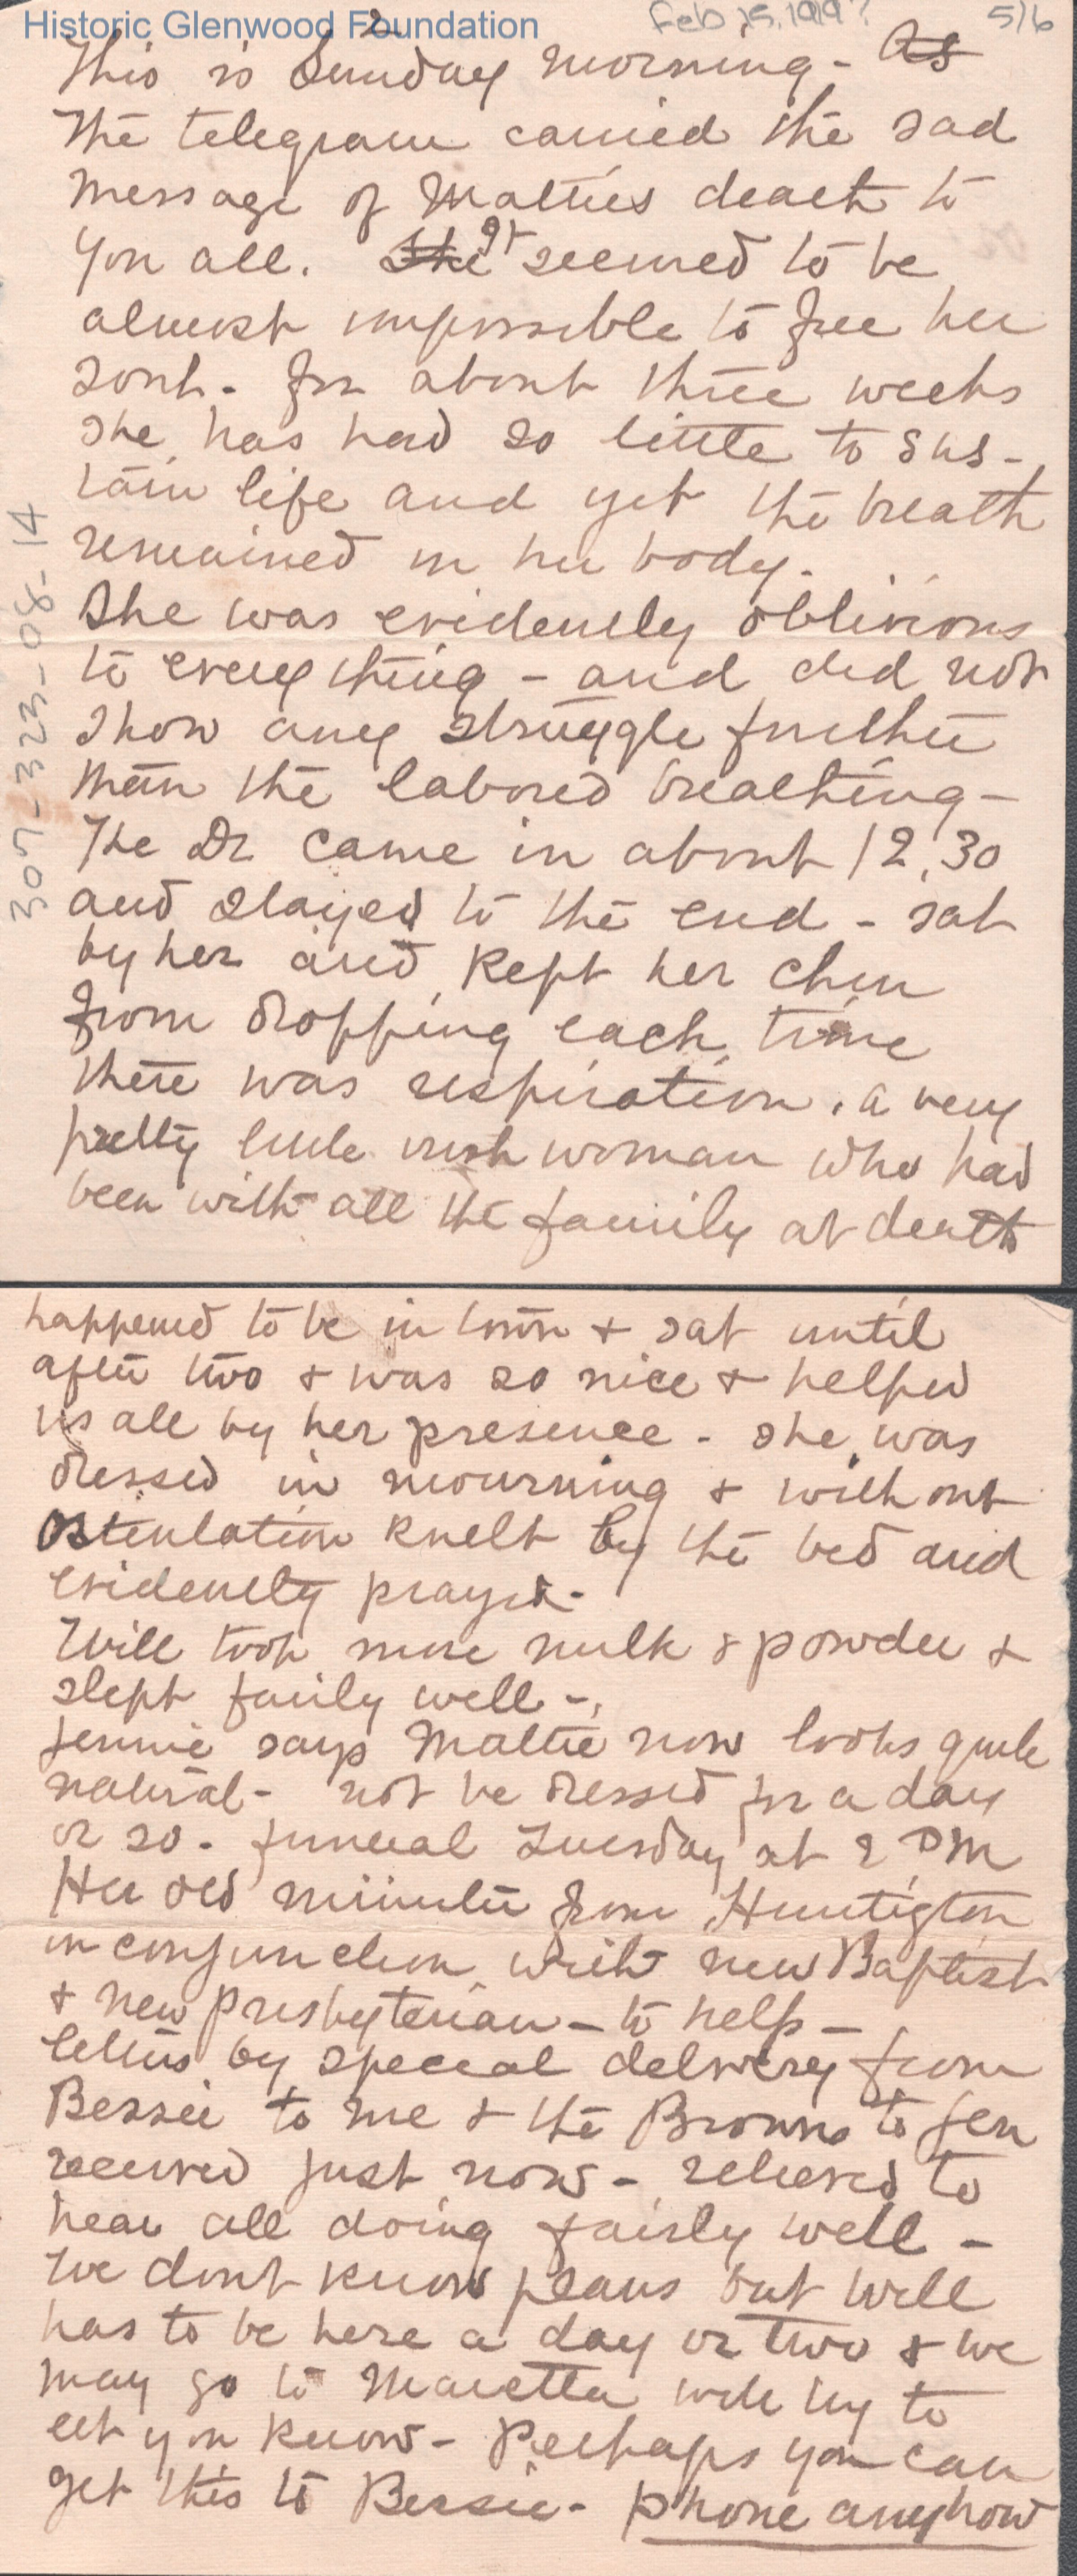 Historic Glenwood Foundation
Feb 25, 1919? 5/6
2
This is Sunday morning - As
The telegram carried the sad
message of Matties death to
you all. She It seemed to be
almost impossible to free her
soul - for about three weeks
she has had so little to sus-
tain life and yet the breath
remained in her body.
She was evidently oblivious
to every thing - and did not
show any struggle further
than the labored breathing -
The Dr came in about 12.30
and stayed to the end - sat
by her and kept her chin
from dropping each time
there was respiration. a very
pretty little irish woman who had
been with all the family at death
happened to be in town + sat until
after two + was so nice + helped
us all by her presence - she was
dressed in mourning + without
ostentation knelt by the bed and
evidently prayed -
Will took more milk & powder +
slept fairly well -
Jennie says Mattie now looks quite
natural - not be dressed for a day
or so - funeral Tuesday at 2 PM
Her old minister from Huntigton
in conjunction with new Baptist
+ new presbyterian - to help -
letters by special delivery from
Bessie to me + the Browns to Jen
received just now - relieved to
hear all doing fairly well -
We dont know plans but Will
has to be here a day or two + we
may go to Marietta will try to
let you know - Perhaps you can
get this to Bessie - phone anyhow
307-323-08-14